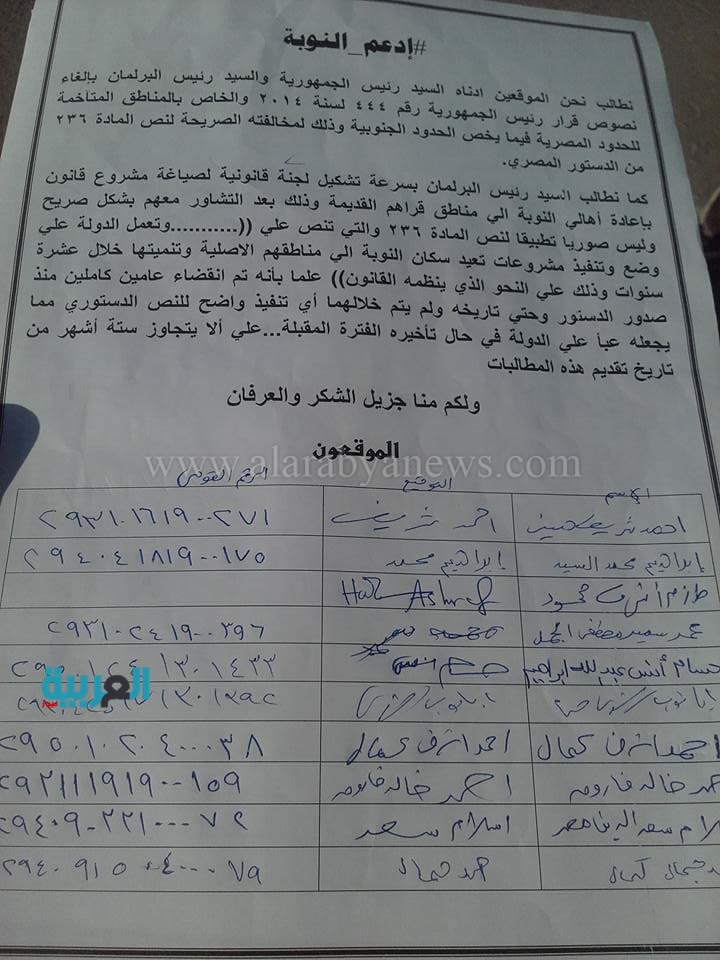 #إدعم_النوبة
نطالب نحن الموقعين ادناه السيد رئيس الجمهورية والسيد رئيس البرلمان بإلغاء
نصوص قرار رئيس الجمهورية رقم ٤٤٤ لسنة ٢٠١٤ والخاص بالمناطق المتاخمة
للحدود المصرية فيما يخص الحدود الجنوبية وذلك لمخالفته الصريحة لنص المادة ٢٣٦
من الدستور المصري.
كما نطالب السيد رئيس البرلمان بسرعة تشكيل لجنة قانونية لصياغة مشروع قانون
بإعادة أهالي النوبة الي مناطق قراهم القديمة وذلك بعد التشاور معهم بشكل صريح
وليس صوريا تطبيقا لنص المادة ٢٣٦ والتي تنص علي ((...........وتعمل الدولة علي
وضع وتنفيذ مشروعات تعيد سكان النوبة الي مناطقهم الاصلية وتنميتها خلال عشرة
سنوات وذلك علي النحو الذي ينظمه القانون)) علما بأنه تم انقضاء عامين كاملين منذ
صدور الدستور وحتي تاريخه ولم يتم خلالهما أي تنفيذ واضح للنص الدستوري مما
يجعله عبأ علي الدولة في حال تأخيره الفترة المقبلة...علي ألا يتجاوز ستة أشهر من
تاريخ تقديم هذه المطالبات
ولكم منا جزيل الشكر والعرفان
الموقعون
www.alarabyanews.com
الاسم التوقيع الرقم القومي
احمد شريف حسين احمد شريف ٢٩٣١٠١٦١٩٠٠٢٧١
إبراهيم محمد السيد إبراهيم محمد ٢٩٤٠٤١٨١٩٠٠١٧٥
محمود
محمد سمير مصطفى ٢٩٣١٠٢٤١٩٠٠٣٩٦
حسام أنس عبدالله ابراهيم حسام أنس
العربية نيوز
احمد اشرف كمال احمد اشرف كمال ٢٩٥٠١٠٢٠٤٠٠٠٣٨
احمد خالد فاروق احمد خالد فاروق ٢٩٢١١١٩١٩٠٠١٥٩
اسلام سعد ٢٩٤٠٩٠٢٢١٠٠٠٧٢
جمال كمال ٢٩٤٠٩١٥٠٤٠٠٠٧٩